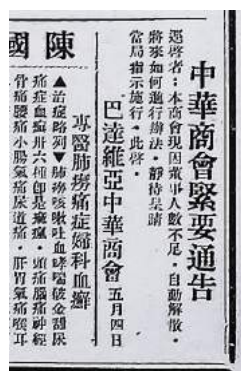 中華商會緊要通告
逕啓者：本商會現因董事人數不足，自動解散，
將來如何進行辦法，靜待呈請
當局指示施行，此啓，
巴達維亞中華商會 五月四日
陳國
專醫肺癆痛症婦科血癬
▲治症略列▼肺癆咳嗽吐血哮喘破金聲尿
痛症血癬卅六種卽是癍瘋，頭痛腦痛神經
骨痛腰痛小腸氣痛尿道痛，肝胃氣痛喉耳